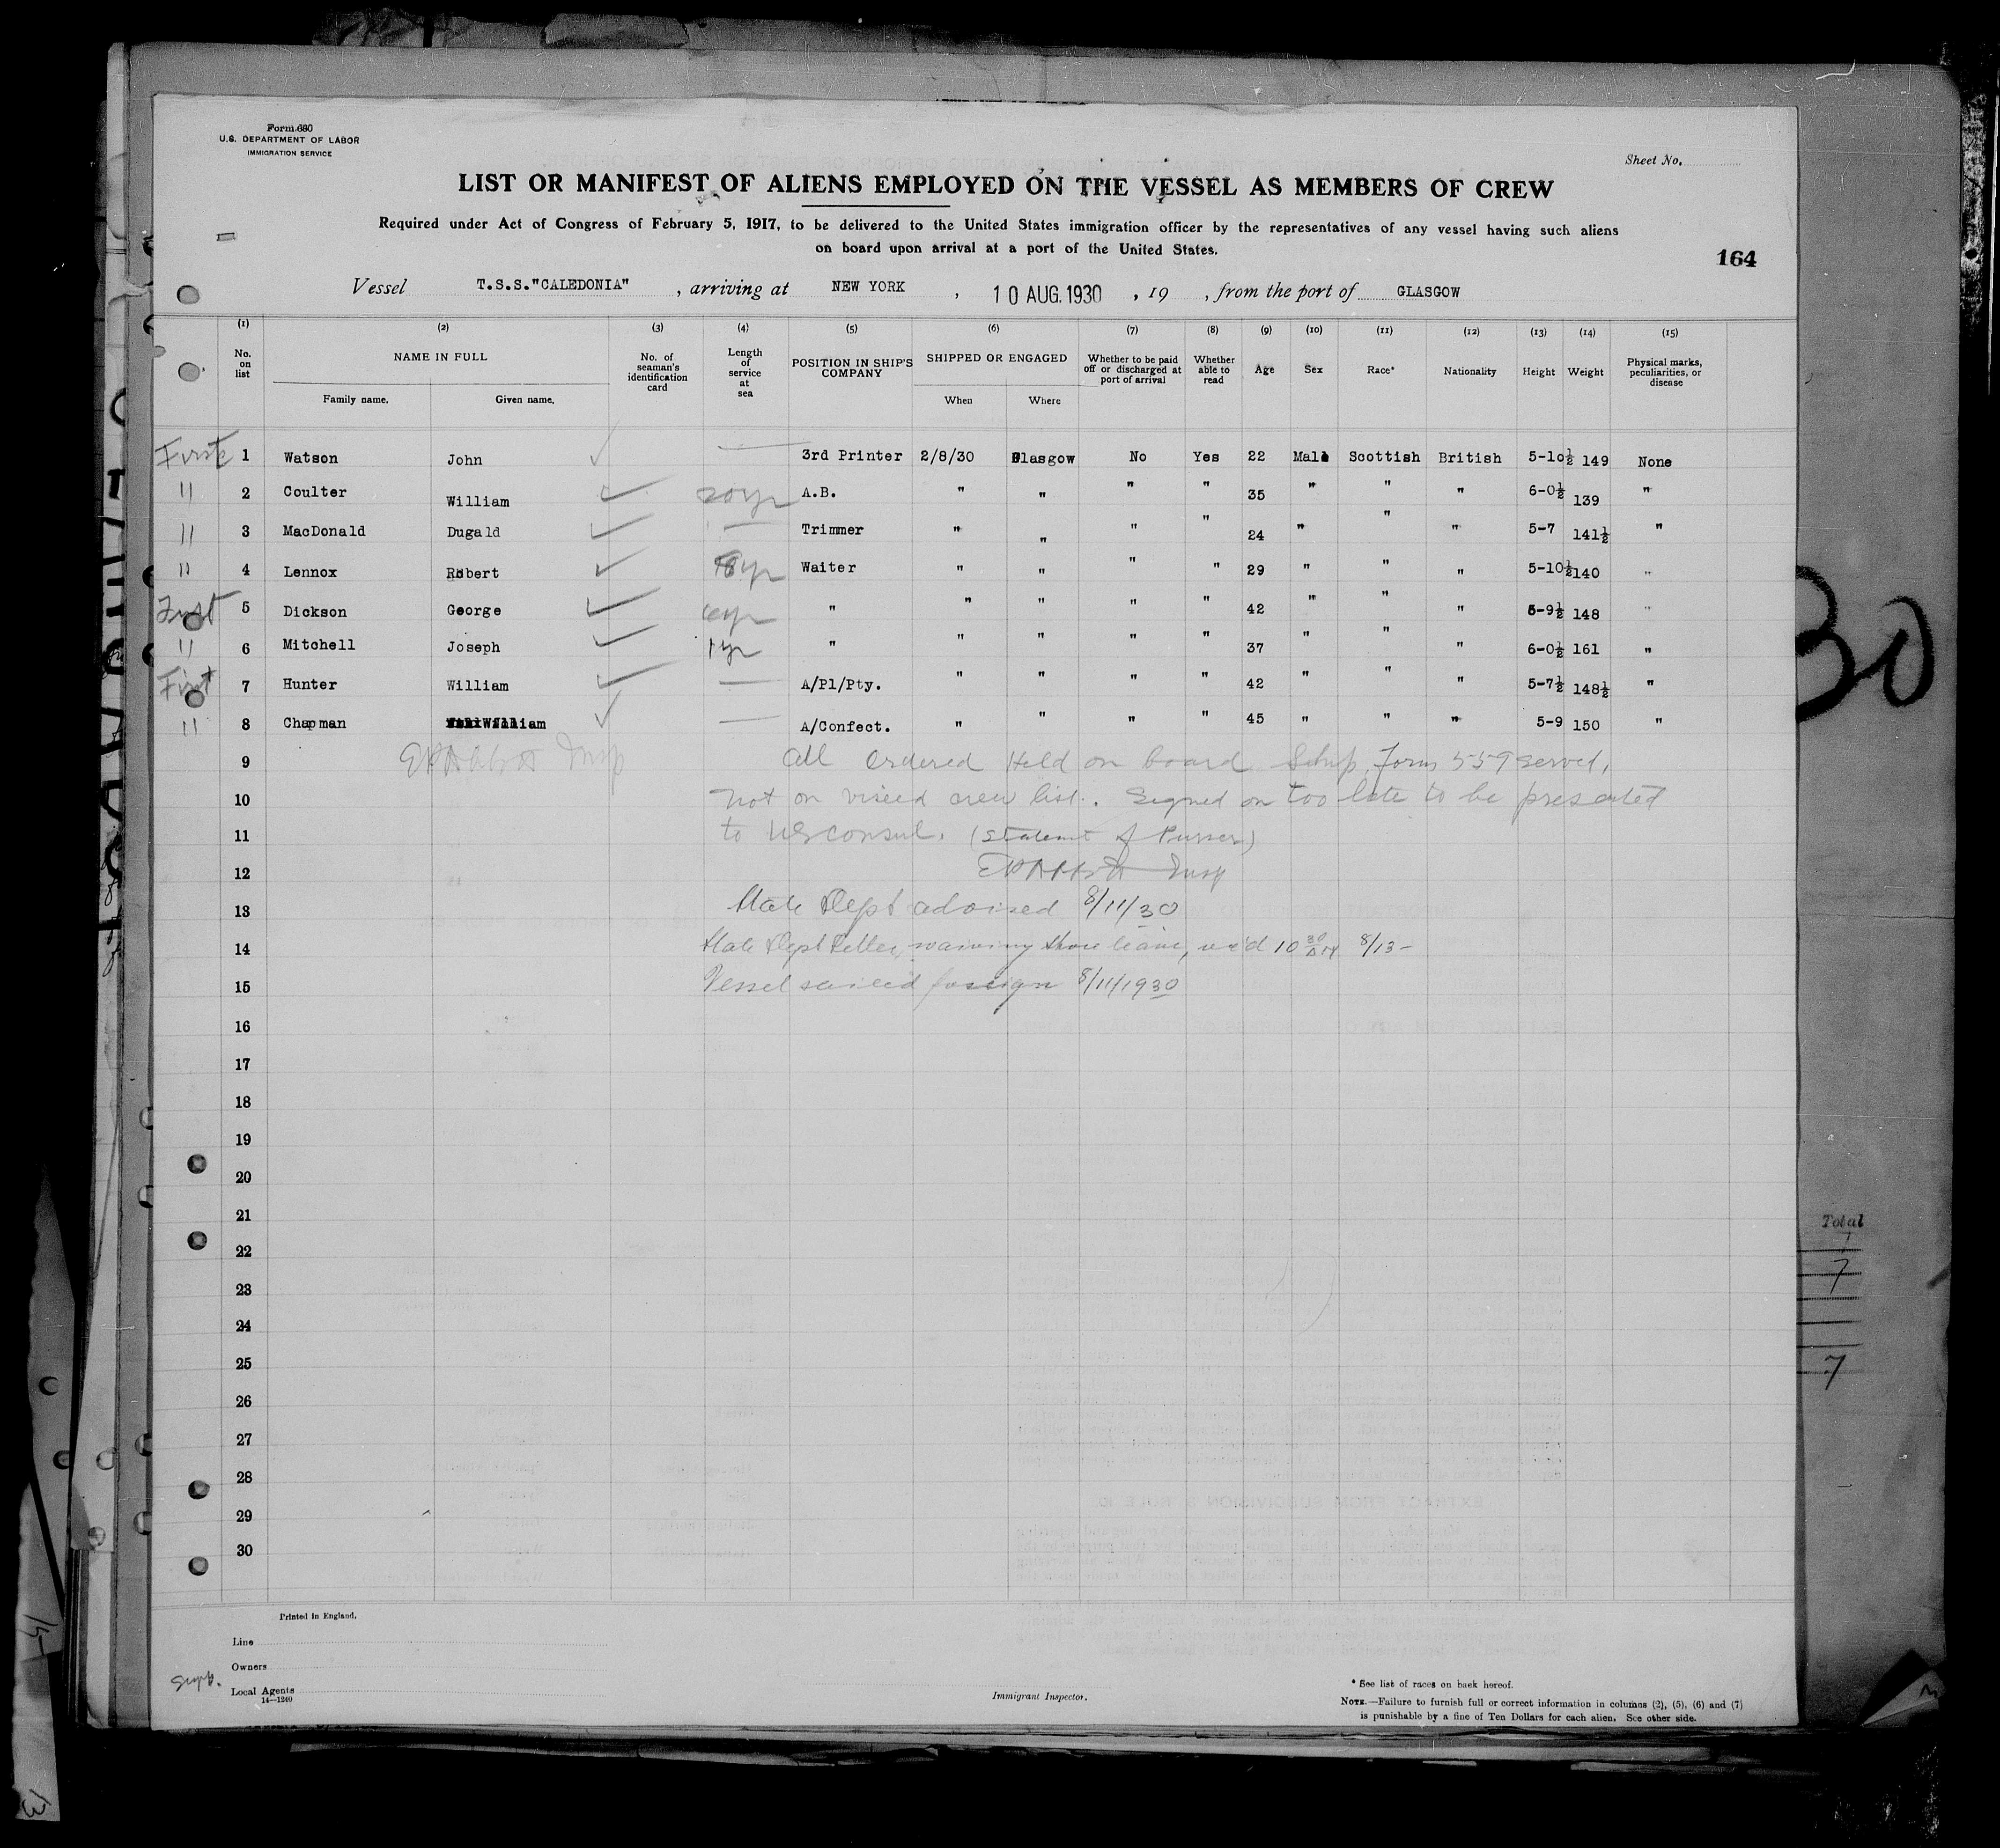 Form 680
U.S. DEPARTMENT OF LABOR
IMMIGRATION SERVICE
Sheet No.
LIST OR MANIFEST OF ALIENS EMPLOYED ON THE VESSEL AS MEMBERS OF CREW
Required under Act of Congress of February 5, 1917, to be delivered to the United States immigration officer by the representatives of any vessel having such aliens
on board upon arrival at a port of the United States.
164
Vessel T.S.S."CALEDONIA" , arriving at NEW YORK , 10 AUG. 1930 , 19 , from the port of GLASGOW
(1) (2) (3) (4) (5) (6) (7) (8) (9) (10) (11) (12) (13) (14) (15)
No. on list NAME IN FULL Family name. Given name. No. of seaman's identification card Length of service at sea POSITION IN SHIP'S COMPANY SHIPPED OR ENGAGED When Where Whether to be paid off or discharged at port of arrival Whether able to read Age Sex Race* Nationality Height Weight Physical marks, peculiarities, or disease
First 1 Watson John ✓ — 3rd Printer 2/8/30 Glasgow No Yes 22 Male Scottish British 5-10½ 149 None
" 2 Coulter William ✓ 20 yr A.B. " " " " 35 " " " 6-0½ 139 "
" 3 MacDonald Dugald ✓ — Trimmer " " " " 24 " " " 5-7 141½ "
" 4 Lennox Robert ✓ 8 yr Waiter " " " " 29 " " " 5-10½ 140 "
First 5 Dickson George ✓ yr " " " " " 42 " " " 5-9½ 148 "
" 6 Mitchell Joseph ✓ 1 yr " " " " " 37 " " " 6-0½ 161 "
First 7 Hunter William ✓ — A/Pl/Pty. " " " " 42 " " " 5-7½ 148½ "
" 8 Chapman William ✓ — A/Confect. " " " " 45 " " " 5-9 150 "
9 Insp All ordered Held on board Ship, Form 559 served,
10 not on viseed crew list. Signed on too late to be presented
11 to US consul. (Statemt of Purser)
12 Insp
13 State Dept advised 8/11/30
14 State Dept letter, waiving shore leave, rec'd 10 30 AM 8/13-
15 Vessel sailed foreign 8/11/1930
16
17
18
19
20
21
22
23
24
25
26
27
28
29
30
Printed in England.
Line
Owners
Local Agents
14—1240
Immigrant Inspector.
* See list of races on back hereof.
NOTE.—Failure to furnish full or correct information in columns (2), (5), (6) and (7)
is punishable by a fine of Ten Dollars for each alien. See other side.
30
Total
7
7